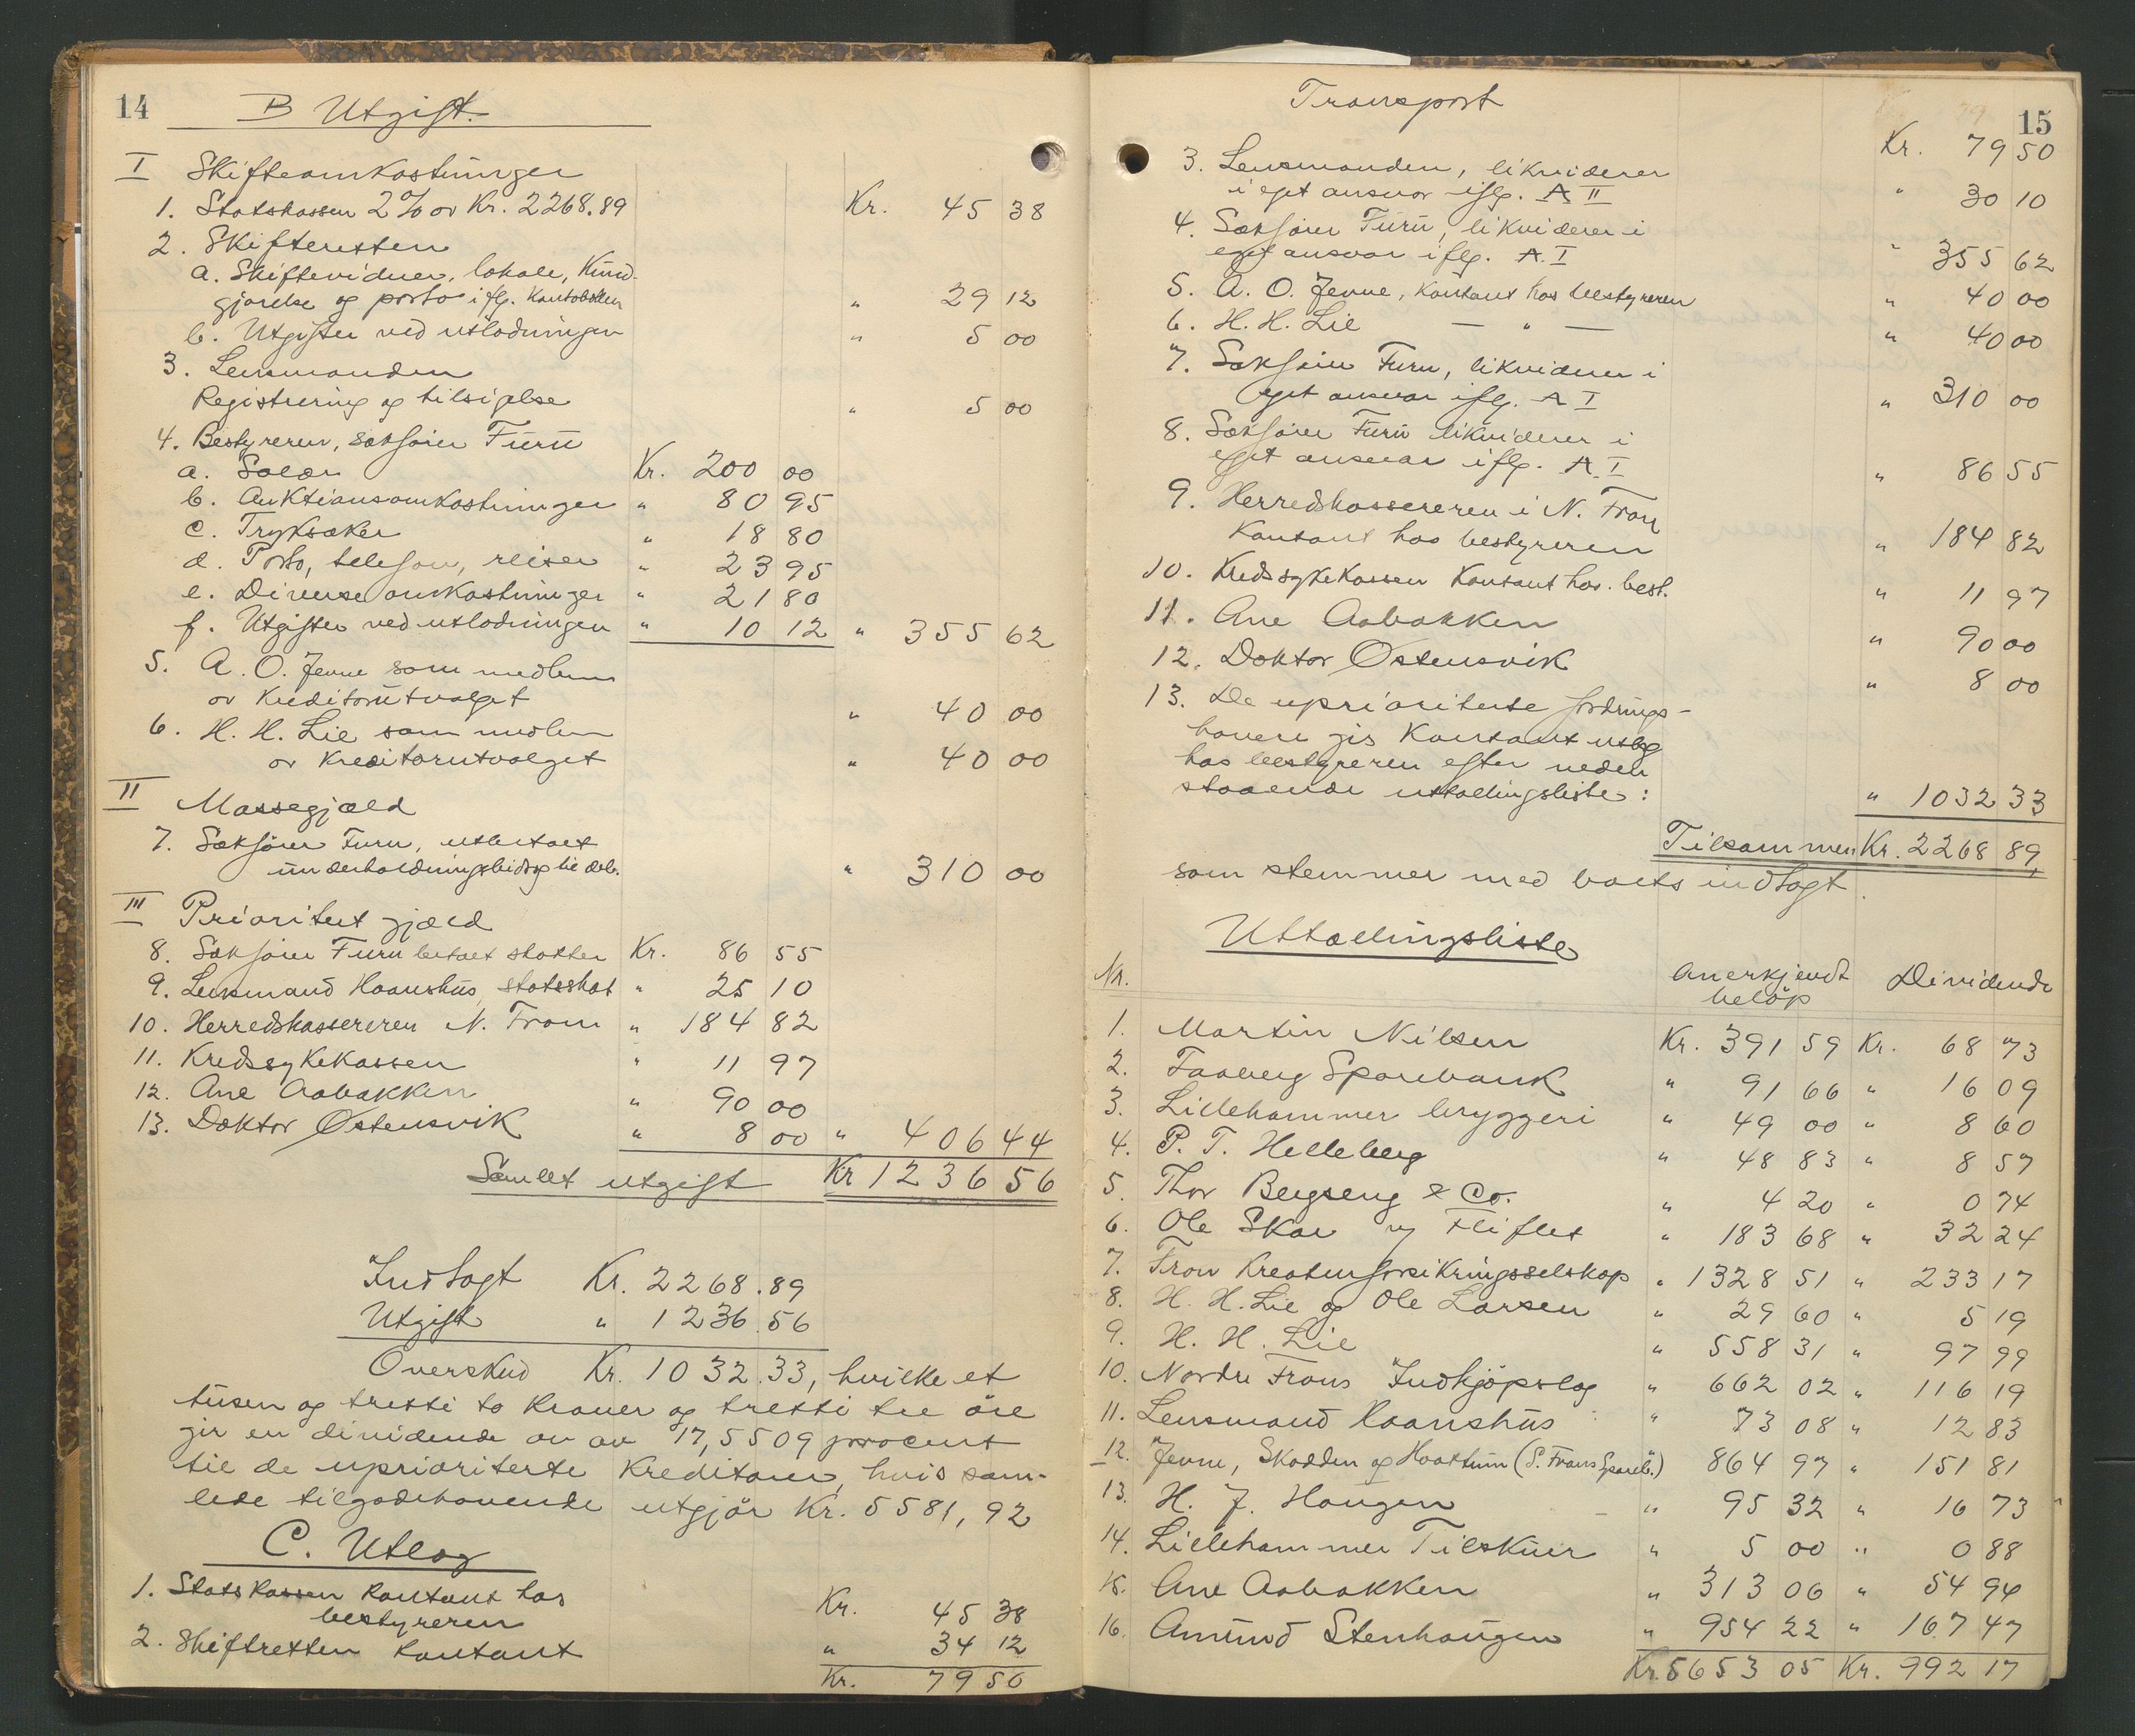 14
B Utgift.
I Skifteomkostninger
1. Statskassen 2% av Kr. 2268.89 Kr. 45 38
2. Skifteretten
a. Skiftevidner, lokale, Kund-
gjørelse og porto ifg. Kontobøken " 29 12
b. Utgifter ved utlodningen " 5 00
3. Lensmanden
Registrering og tilsigelse " 5 00
4. Bestyreren, sakfører Furu
a. Salær Kr. 200 00
b. Auktionsomkostninger " 80 95
c. Tryksaker " 18 80
d. Porto, telefon, reiser " 23 95
e. Diverse omkostninger " 21 80
f. Utgifter ved utlodningen " 10 12 " 355 62
5. A. O. Jevne som medlem
av Kreditorutvalget " 40 00
6. H. H. Lie som medlem
av Kreditorutvalget " 40 00
II Massegjæld
7. Sakfører Furu, utbetalt
underholdningsbidrag til deb. " 310 00
III Prioritert gjæld
8. Sakfører Furu betalt skatter Kr. 86 55
9. Lensmand Haanshus, statsskat " 25 10
10. Herredskassereren N. Fron " 184 82
11. Kredssykekassen " 11 97
12. Ane Aabakken " 90 00
13. Doktor Østensvik " 8 00 " 406 44
Samlet utgift Kr 1236 56
Indtægt Kr. 2268.89
Utgift " 1236.56
Overskud Kr. 1032.33, hvilke et
tusen og tretti to Kroner og tretti tre øre
gir en dividende av av 17,5509 procent
til de uprioriterte Kreditorer, hvis sam-
lede tilgodehavende utgjør Kr. 5581,92
C. Utlæg
1. Statskassen Kontant hos
bestyreren Kr. 45 38
2. Skiftretten Kontant " 34 12
Kr. 79 50
15
Transport Kr. 79 50
3. Lensmanden, likviderer
i eget ansvar ifg. A II " 30 10
4. Sakfører Furu, likviderer i
eget ansvar iflg. A. I " 355 62
5. A. O. Jevne, Kontant hos bestyreren " 40 00
6. H. H. Lie — " — " 40 00
7. Sakfører Furu, likviderer i
eget ansvar iflg. A I " 310 00
8. Sakfører Furu likviderer i
eget ansvar iflg. A I " 86 55
9. Herredskassereren i N. Fron
Kontant hos bestyreren " 184 82
10. Kredssykekassen Kontant hos. best. " 11 97
11. Ane Aabakken " 90 00
12. Doktor Østensvik " 8 00
13. De uprioriterte fordrings-
havere gis Kontant utlæg
hos bestyreren efter neden
staaende uttællingsliste: " 1032 33
Tilsammen Kr. 2268 89
som stemmer med boets indtægt.
Uttællingsliste
Nr. Anerkjendt Dividende
beløp
1. Martin Nilsen Kr. 391 59 Kr. 68 73
2. Faaberg Sparebank " 91 66 " 16 09
3. Lillehammer bryggeri " 49 00 " 8 60
4. P. T. Helleberg " 48 83 " 8 57
5. Thor Bergseng & Co. " 4 20 " 0 74
6. Ole Skar og Fliflet " 183 68 " 32 24
7. Fron Kreaturforsikringsselskap " 1328 51 " 233 17
8. H. H. Lie og Ole Larsen " 29 60 " 5 19
9. H. H. Lie " 558 31 " 97 99
10. Nordre Frons Indkjøpslag " 662 02 " 116 19
11. Lensmand Haanshus " 73 08 " 12 83
12. Jevne, Skodden og Hoattum (S. Frons Spareb.) 864 97 " 151 81
13. H. J. Haugen " 95 32 " 16 73
14. Lillehammer Tilskuer " 5 00 " 0 88
15. Ane Aabakken " 313 06 " 54 94
16. Amund Stenhaugen " 954 22 " 167 47
Kr. 5653 05 Kr. 992 17